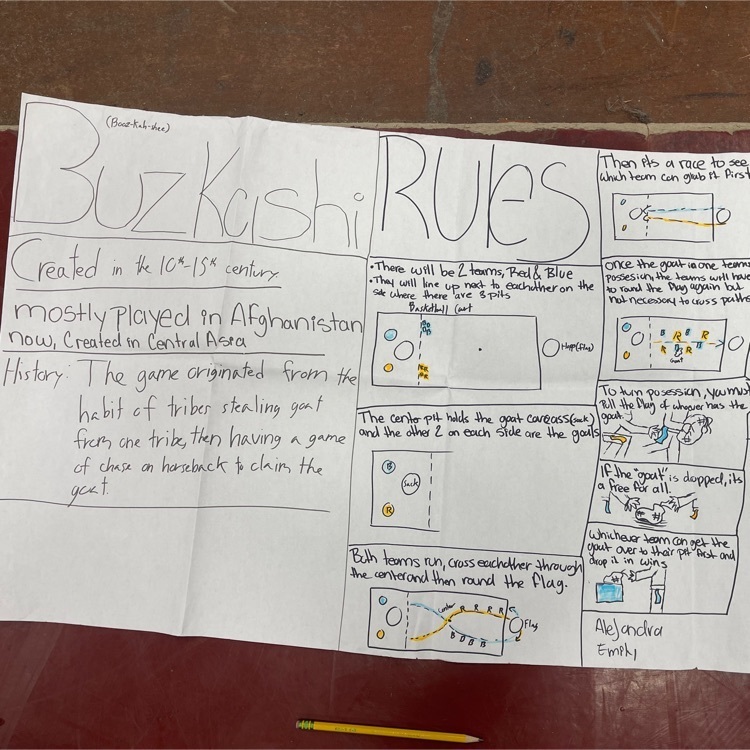 (Booz-kah-shee)
Buzkashi
Created in the 10th-15th century
mostly played in Afghanistan
now, Created in Central Asia
History: The game originated from the
habit of tribes stealing goat
from one tribe, then having a game
of chase on horseback to claim the
goat.
RULES
• There will be 2 teams, Red & Blue
• They will line up next to eachother on the
side where there are 3 pits
Basketball Court
B B
B B
R R
R R
Hoop (flag)
The center pit holds the goat carcass (sack)
and the other 2 on each side are the goals
B
Sack
R
Both teams run, cross eachother through
the center and then round the flag.
Center
R R R R
B B B B
Flag
Then its a race to see
which team can grab it first
Once the goat in one teams
possesion, the teams will have
to round the flag again but
not necessary to cross paths
B R B R
R B R
Goat
To turn posession, you must
Pull the flag of whoever has the
goat.
If the "goat" is dropped, its
a free for all.
Whichever team can get the
goat over to their pit first and
drop it in wins
Alejandra